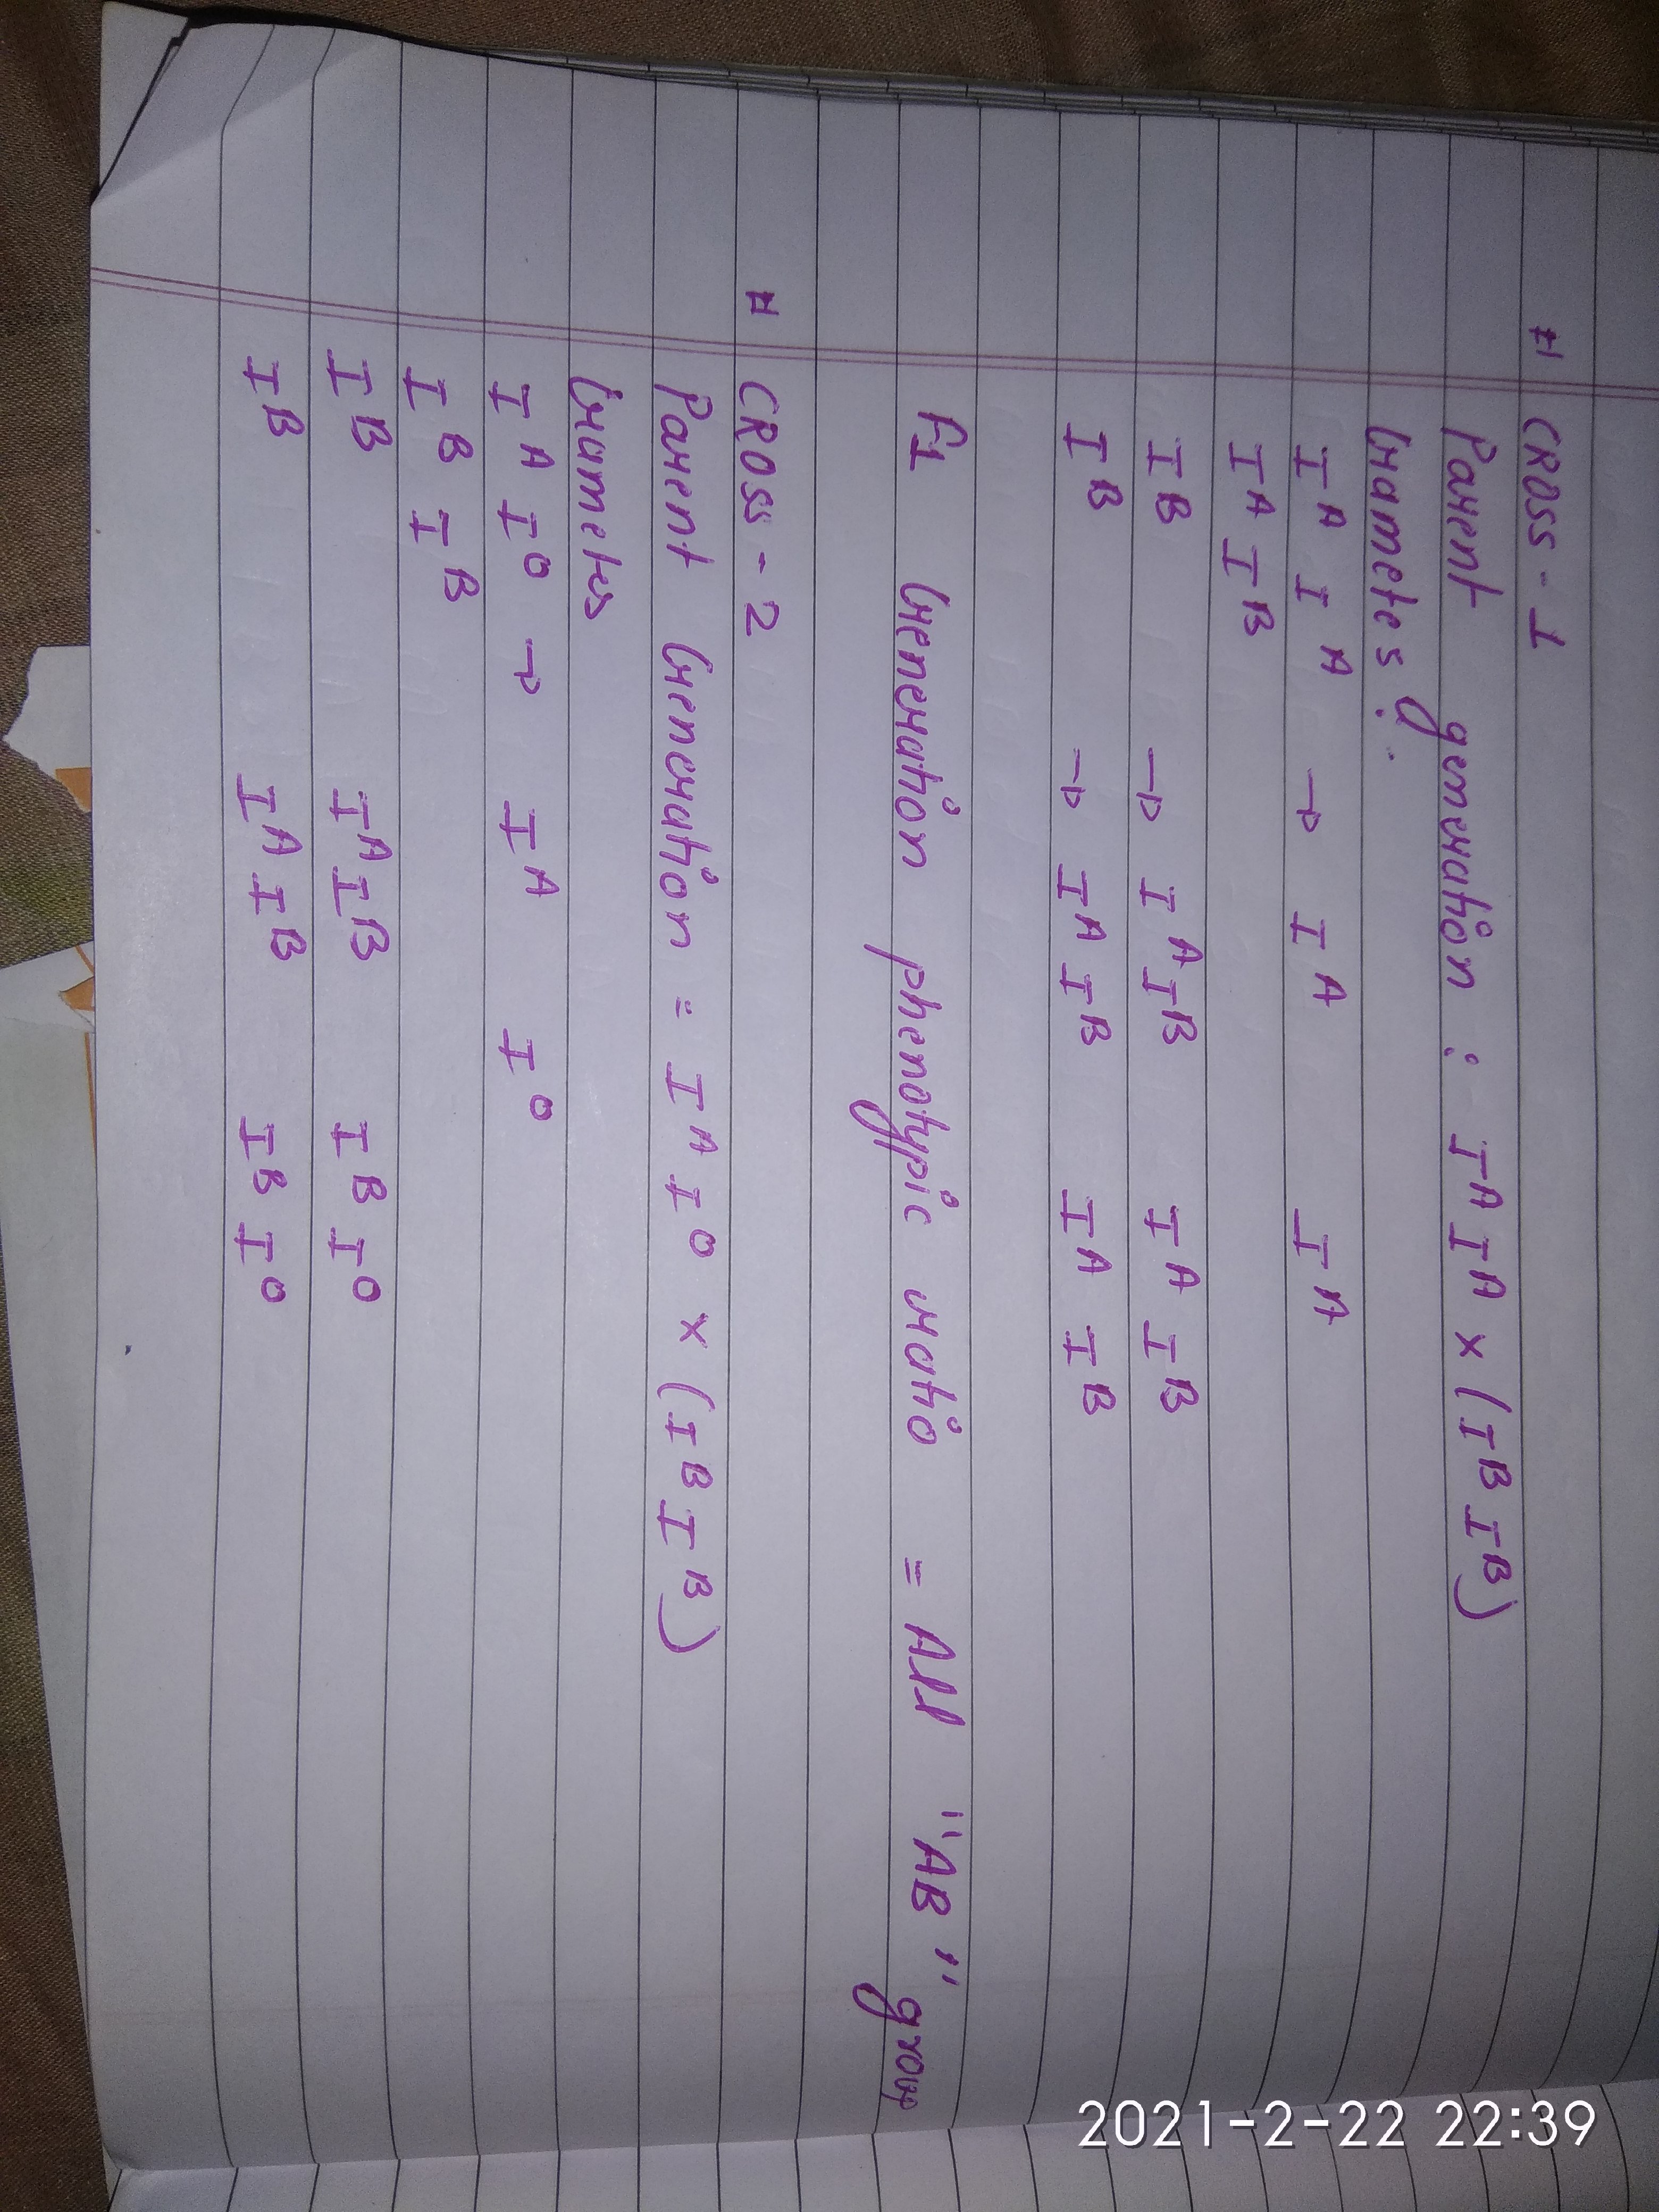 # CROSS - 1
Parent generation : IA IA × (IB IB)
Gametes :
IA IA → IA IA
IA IB
IB → IA IB IA IB
IB → IA IB IA IB
F1 Generation phenotypic ratio = All "AB" group
# CROSS - 2
Parent Generation = IA IO × (IB IB)
Gametes
IA IO → IA IO
IB IB
IB IA IB IB IO
IB IA IB IB IO
2021-2-22 22:39